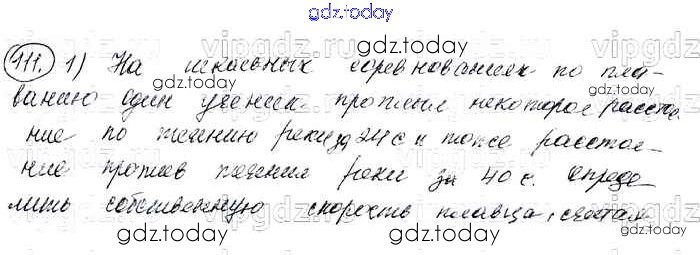 gdz.today
111. 1) На школьных соревнованиях по пла-
ванию один ученик проплыл некоторое расстоя-
ние по течению реки за 24 с и тоже расстоя-
ние против течения реки за 40 с. Опреде
лить собственную скорость пловца, считая
gdz.today
gdz.today